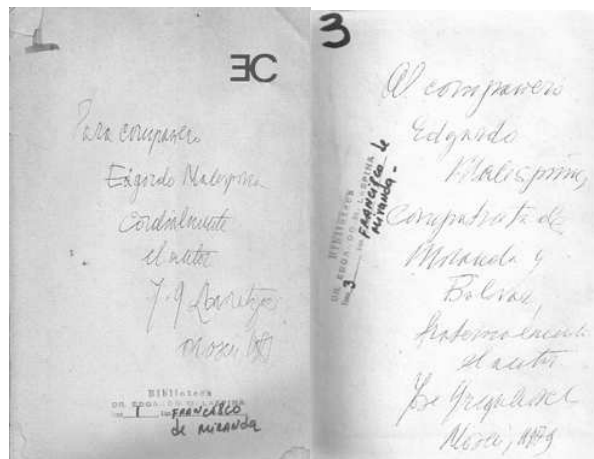 1
ЭC
Para compañero
Edgardo Malespina
Cordialmente
el autor
Biblioteca
DR. EDGARDO M.
1 FRANCISCO
de MIRANDA
3
Al compañero
Edgardo
Malespina,
compatriota de
Miranda y
Bolívar,
fraternalmente
el autor
Biblioteca
3 FRANCISCO de
MIRANDA-